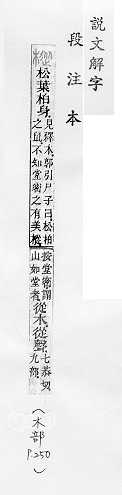 說文解字
段注本
樅 松葉柏身。見釋木。郭引尸子曰。松柏之鼠不知堂密之有美樅。按堂密謂山如堂者。從木從聲。七恭切九部
（木部 P.250）